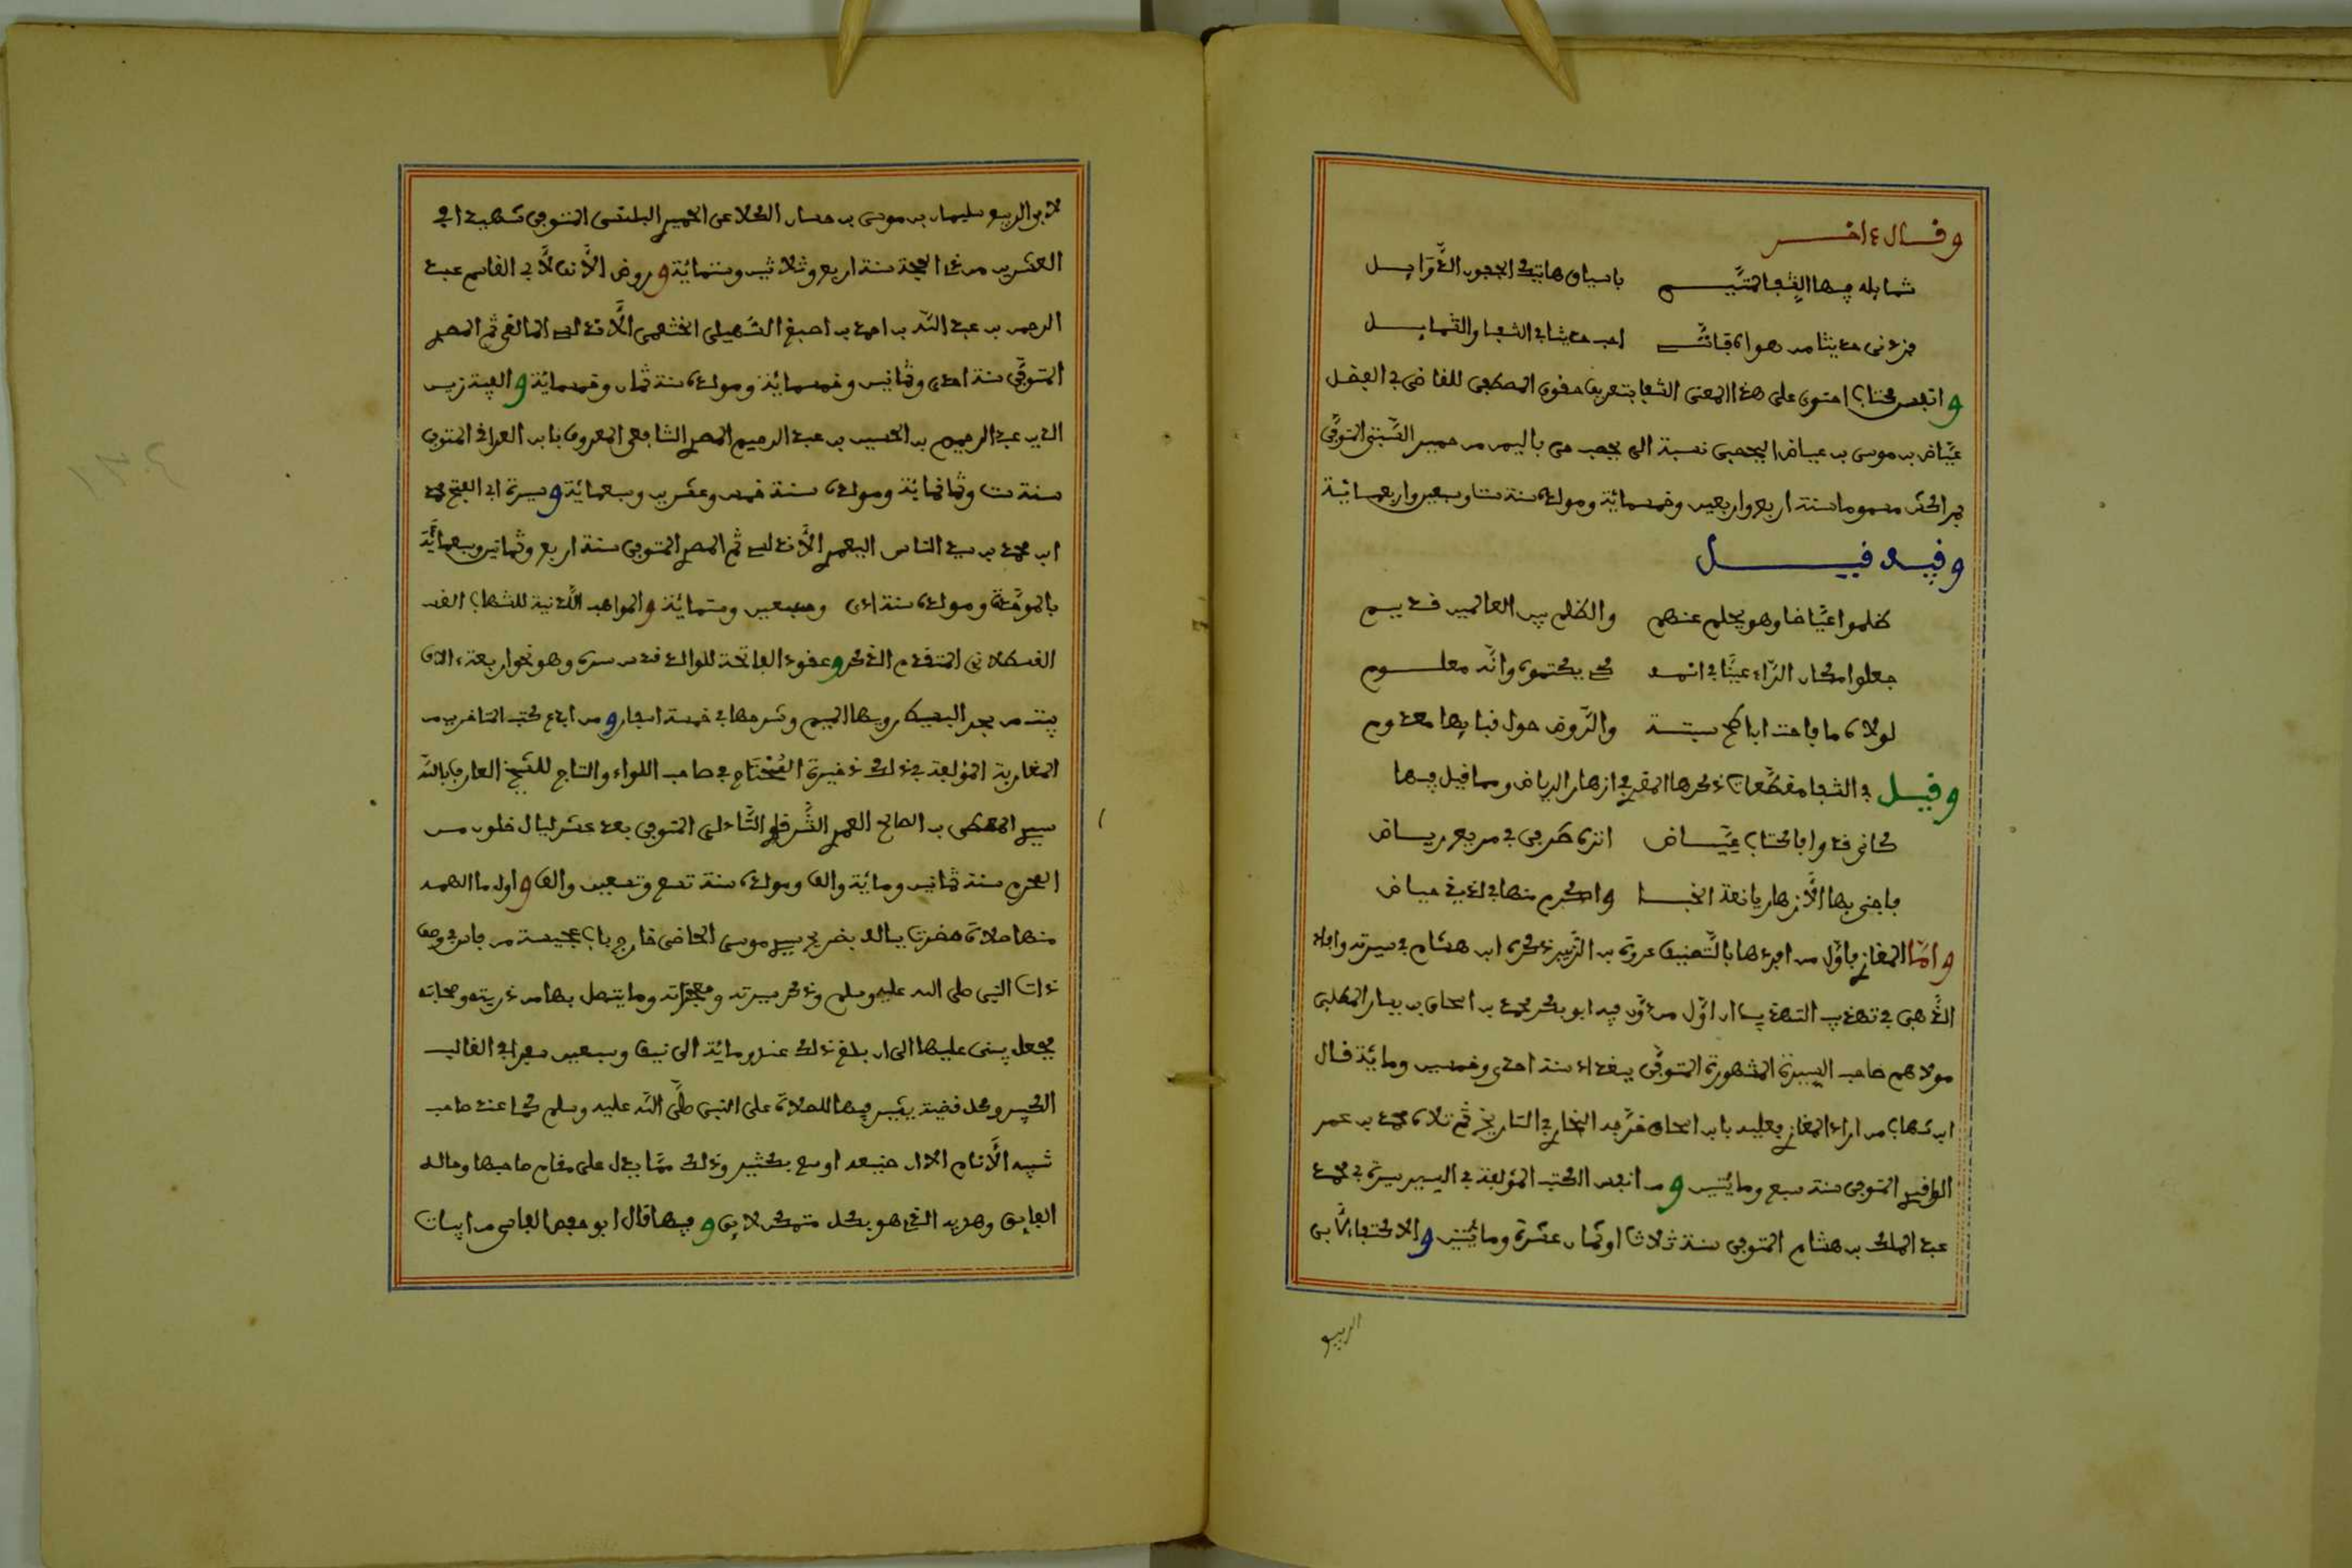 وقال ءاخر
شمايله فيها الفتى المتيم باسياف هاتيك الجفون الذوابل
فزدنى حديثا من هواه فانني احب حديثا في الشفا والشمايل
وانفس كتاب احتوى على هذا المعنى الشفا بتعريف حقوق المصطفى للقاضى ابى الفضل
عياض بن موسى بن عياض اليحصبى نسبة الى يحصب حى باليمن من حمير السبتى المتوفى
بمراكش مسموما سنة اربع واربعين وخمسمائة ومولده سنة ست وسبعين واربعمائة
وفيه قيل
ظلموا عياضا وهو يحلم عنهم والظلم بين العالمين قديم
جعلوا مكان الراء عينا في اسمه كى يكتموه وانه معلوم
لولاه ما فاحت اباطح سبتة والروض حول فنايها معدوم
وقيل في الشفا مقطعات ذكرها المقرى في ازهار الرياض ومما قيل فيها
كانى قد وافا كتاب عياض انزه طرفى في مربع رياض
فاجنى بها الازهار يانعة الجنا واكرع منها في لذيذ حياض
واما المغازى فاول من افردها بالتصنيف عروة بن الزبير ذكره ابن هشام في سيرته وافاد
الذهبى في تهذيب التهذيب ان اول من دون فيه ابو بكر محمد بن اسحاق بن يسار المطلبى
مولاهم صاحب السيرة المشهورة المتوفى ببغداد سنة احدى وخمسين ومائة قال
ابن شهاب من اراد المغازى فعليه بابن اسحاق خرجه البخارى في التاريخ ثم تلاه محمد بن عمر
الواقدى المتوفى سنة سبع ومائتين ومن انفس الكتب المؤلفة في السير سيرة ابى محمد
عبد الملك بن هشام المتوفى سنة ثلاث او ثمان عشرة ومائتين والاكتفاء لابى
الربيع
لابى الربيع سليمان بن موسى بن حسان الكلاعى الحميرى البلنسى المتوفى شهيدا في
العشرين من ذى الحجة سنة اربع وثلاثين وستمائة وروض الانف لابى القاسم عبد
الرحمن بن عبد الله بن احمد بن اصبغ السهيلى الخثعمى الاندلسى المالقى ثم المصرى
المتوفى سنة احدى وثمانين وخمسمائة ومولده سنة ثمان وخمسمائة والفية زين
الدين عبد الرحيم بن الحسين بن عبد الرحيم المصرى الشافعى المعروف بابن العراقى المتوفى
سنة ست وثمانمائة ومولده سنة خمس وعشرين وسبعمائة وسيرة ابى الفتح محمد
ابن محمد بن سيد الناس اليعمرى الاندلسى ثم المصرى المتوفى سنة اربع وثمانين وسبعمائة
ومولده سنة احدى وسبعين وستمائة والمواهب اللدنية للشهاب
القسطلانى المتقدم الذكر وعقود الفاتحة للوالد قدس سره وهو نحو اربعة ءالاف
بيت من بحر البسيط رويها الميم وشرحها في خمسة اسفار ومن ابدع كتب المتاخرين من
المغاربة المؤلفة في ذلك ذخيرة المحتاج في صاحب اللواء والتاج للشيخ العارف بالله
سيدى المعطى بن الصالح العمرى الشرقى الشاذلى المتوفى بعد عشر ليال خلون من
المحرم سنة ثمانين ومائة والف ومولده سنة تسع وتسعين والف واول ما الهمه
منها صلاة حضرت بباله بضريح سيدى موسى الخاضى خارج باب عجيسة من فاس في وصف
ذات النبى صلى الله عليه وسلم وذكر سيرته ومعجزاته وما يتصل بها من ذريته وصحابته
فجعل يبنى عليها الى ان بلغ ذلك عنده ومائة الى نيف وسبعين سفرا في القالب
الكبير وكل قضية يفتتح فيها بالصلاة على النبى صلى الله عليه وسلم كما عند صاحب
تنبيه الانام الا ان صنيعه اوسع بكثير وذلك مما يدل على مقام صاحبها وحاله
الفايق وهديه الذى هو بكل متمكن لايق وفيها قال ابو حفص الفاسى من ابيات